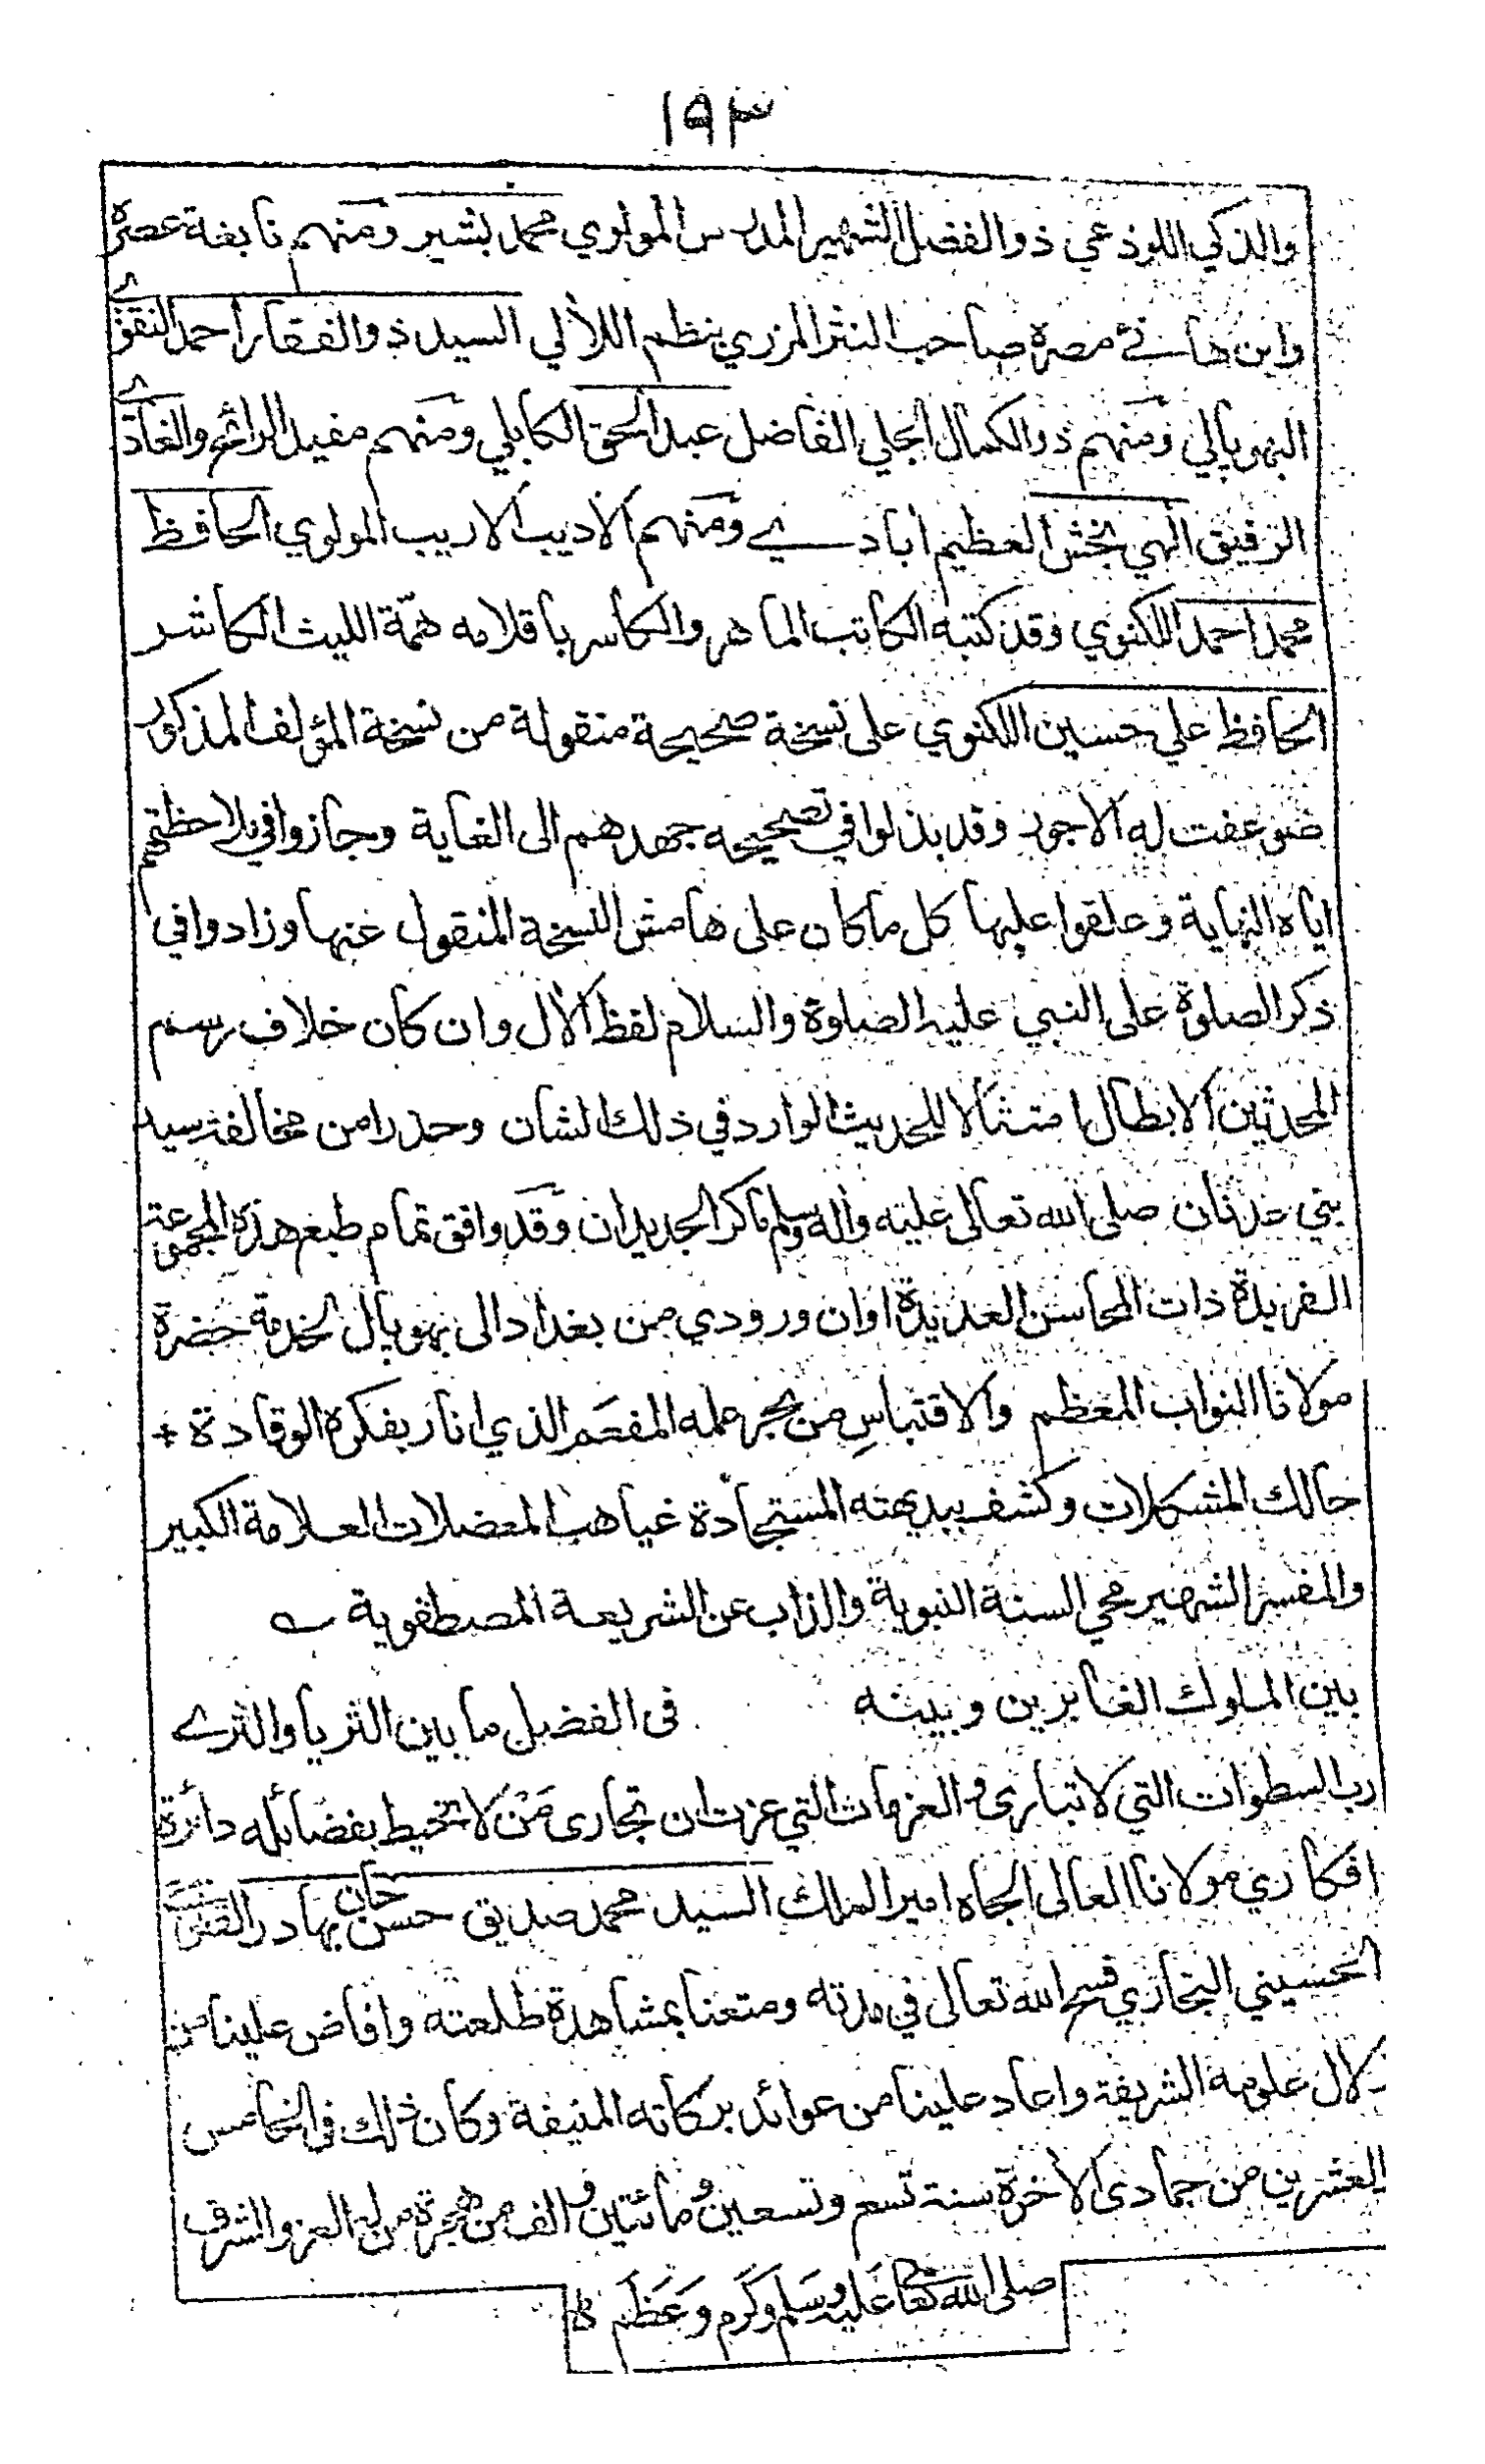 ١٩٣
والذكي اللوذعي ذو الفضل الشهير المدرس المولوي محمد بشير ومنهم نابغة عصره
وابن هانئ مصره صاحب النثر المزري بنظم اللآلي السيد ذو الفقار احمد النقوي
البهوپالي ومنهم ذو الكمال الجلي الفاضل عبد الحق الكابلي ومنهم مفيد الرائح والغادي
الرفيق الهي بخش العظيم ابادي ومنهم الاديب الاريب المولوي الحافظ
محمد احمد اللكنوي وقد كتبه الكاتب الماهر والكاسر باقلامه همّة الليث الكاشر
الحافظ علي حسين اللكنوي على نسخة صحيحة منقولة من نسخة المؤلف المذكور
ضوعفت له الاجور وقد بذلوا في تصحيحه جهدهم الى الغاية وجازوا في بلاحظتهم
اياه النهاية وعلقوا عليها كل ما كان على هامش النسخة المنقول عنها وزادوا في
ذكر الصلوة على النبي عليه الصلوة والسلام لفظ الأل وان كان خلاف رسم
المحدثين الابطال امتثالا للحديث الوارد في ذلك الشان وحذرا من مخالفة سيد
بني عدنان صلى الله تعالى عليه واله وسلم ما كر الجديدان وقد وافق تمام طبع هذه المجموعة
الفريدة ذات المحاسن العديدة اوان ورودي من بغداد الى بهوپال لخدمة حضرة
مولانا النواب المعظم والاقتباسِ من بحر علمه المفعم الذي انار بفكره الوقادة +
حالك المشكلات وكشف ببديهته المستجادة غياهب المعضلات العلامة الكبير
والمفسر الشهير محي السنة النبوية والذاب عن الشريعة المصطفوية ؎
بين الملوك الغابرين وبينه في الفضل ما بين الثريا والثرے
رب السطوات التي لا تبارى والعزمات التي عزت ان تجارى مَنْ لا تحيط بفضائله دائرة
افكاري مولانا العالى الجاه امير الملك السيد محمد صديق حسن خان بهادر القنوجي
الحسيني البخاري فسح الله تعالى في مدته ومتعنا بمشاهدة طلعته وافاض علينا من
زلال علومه الشريفة واعاد علينا من عوائد بركاته المنيفة وكان ذلك في الخامس
والعشرين من جمادى الاخرة سنة تسع وتسعين ومائتين والف من هجرة من له العز والشرف
صلى الله تعالى عليه وسلم وكرم وعَظَّم